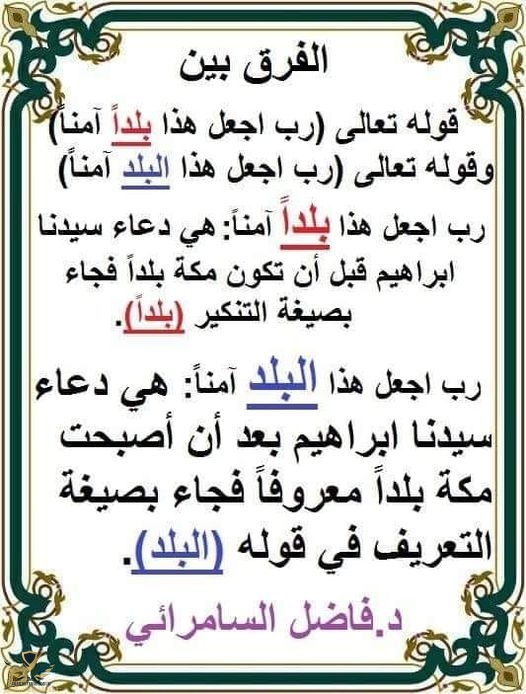 الفرق بين
قوله تعالى (رب اجعل هذا بلداً آمناً)
وقوله تعالى (رب اجعل هذا البلد آمناً)
رب اجعل هذا بلداً آمناً: هي دعاء سيدنا
ابراهيم قبل أن تكون مكة بلداً فجاء
بصيغة التنكير (بلداً).
رب اجعل هذا البلد آمناً: هي دعاء
سيدنا ابراهيم بعد أن أصبحت
مكة بلداً معروفاً فجاء بصيغة
التعريف في قوله (البلد).
د.فاضل السامرائي